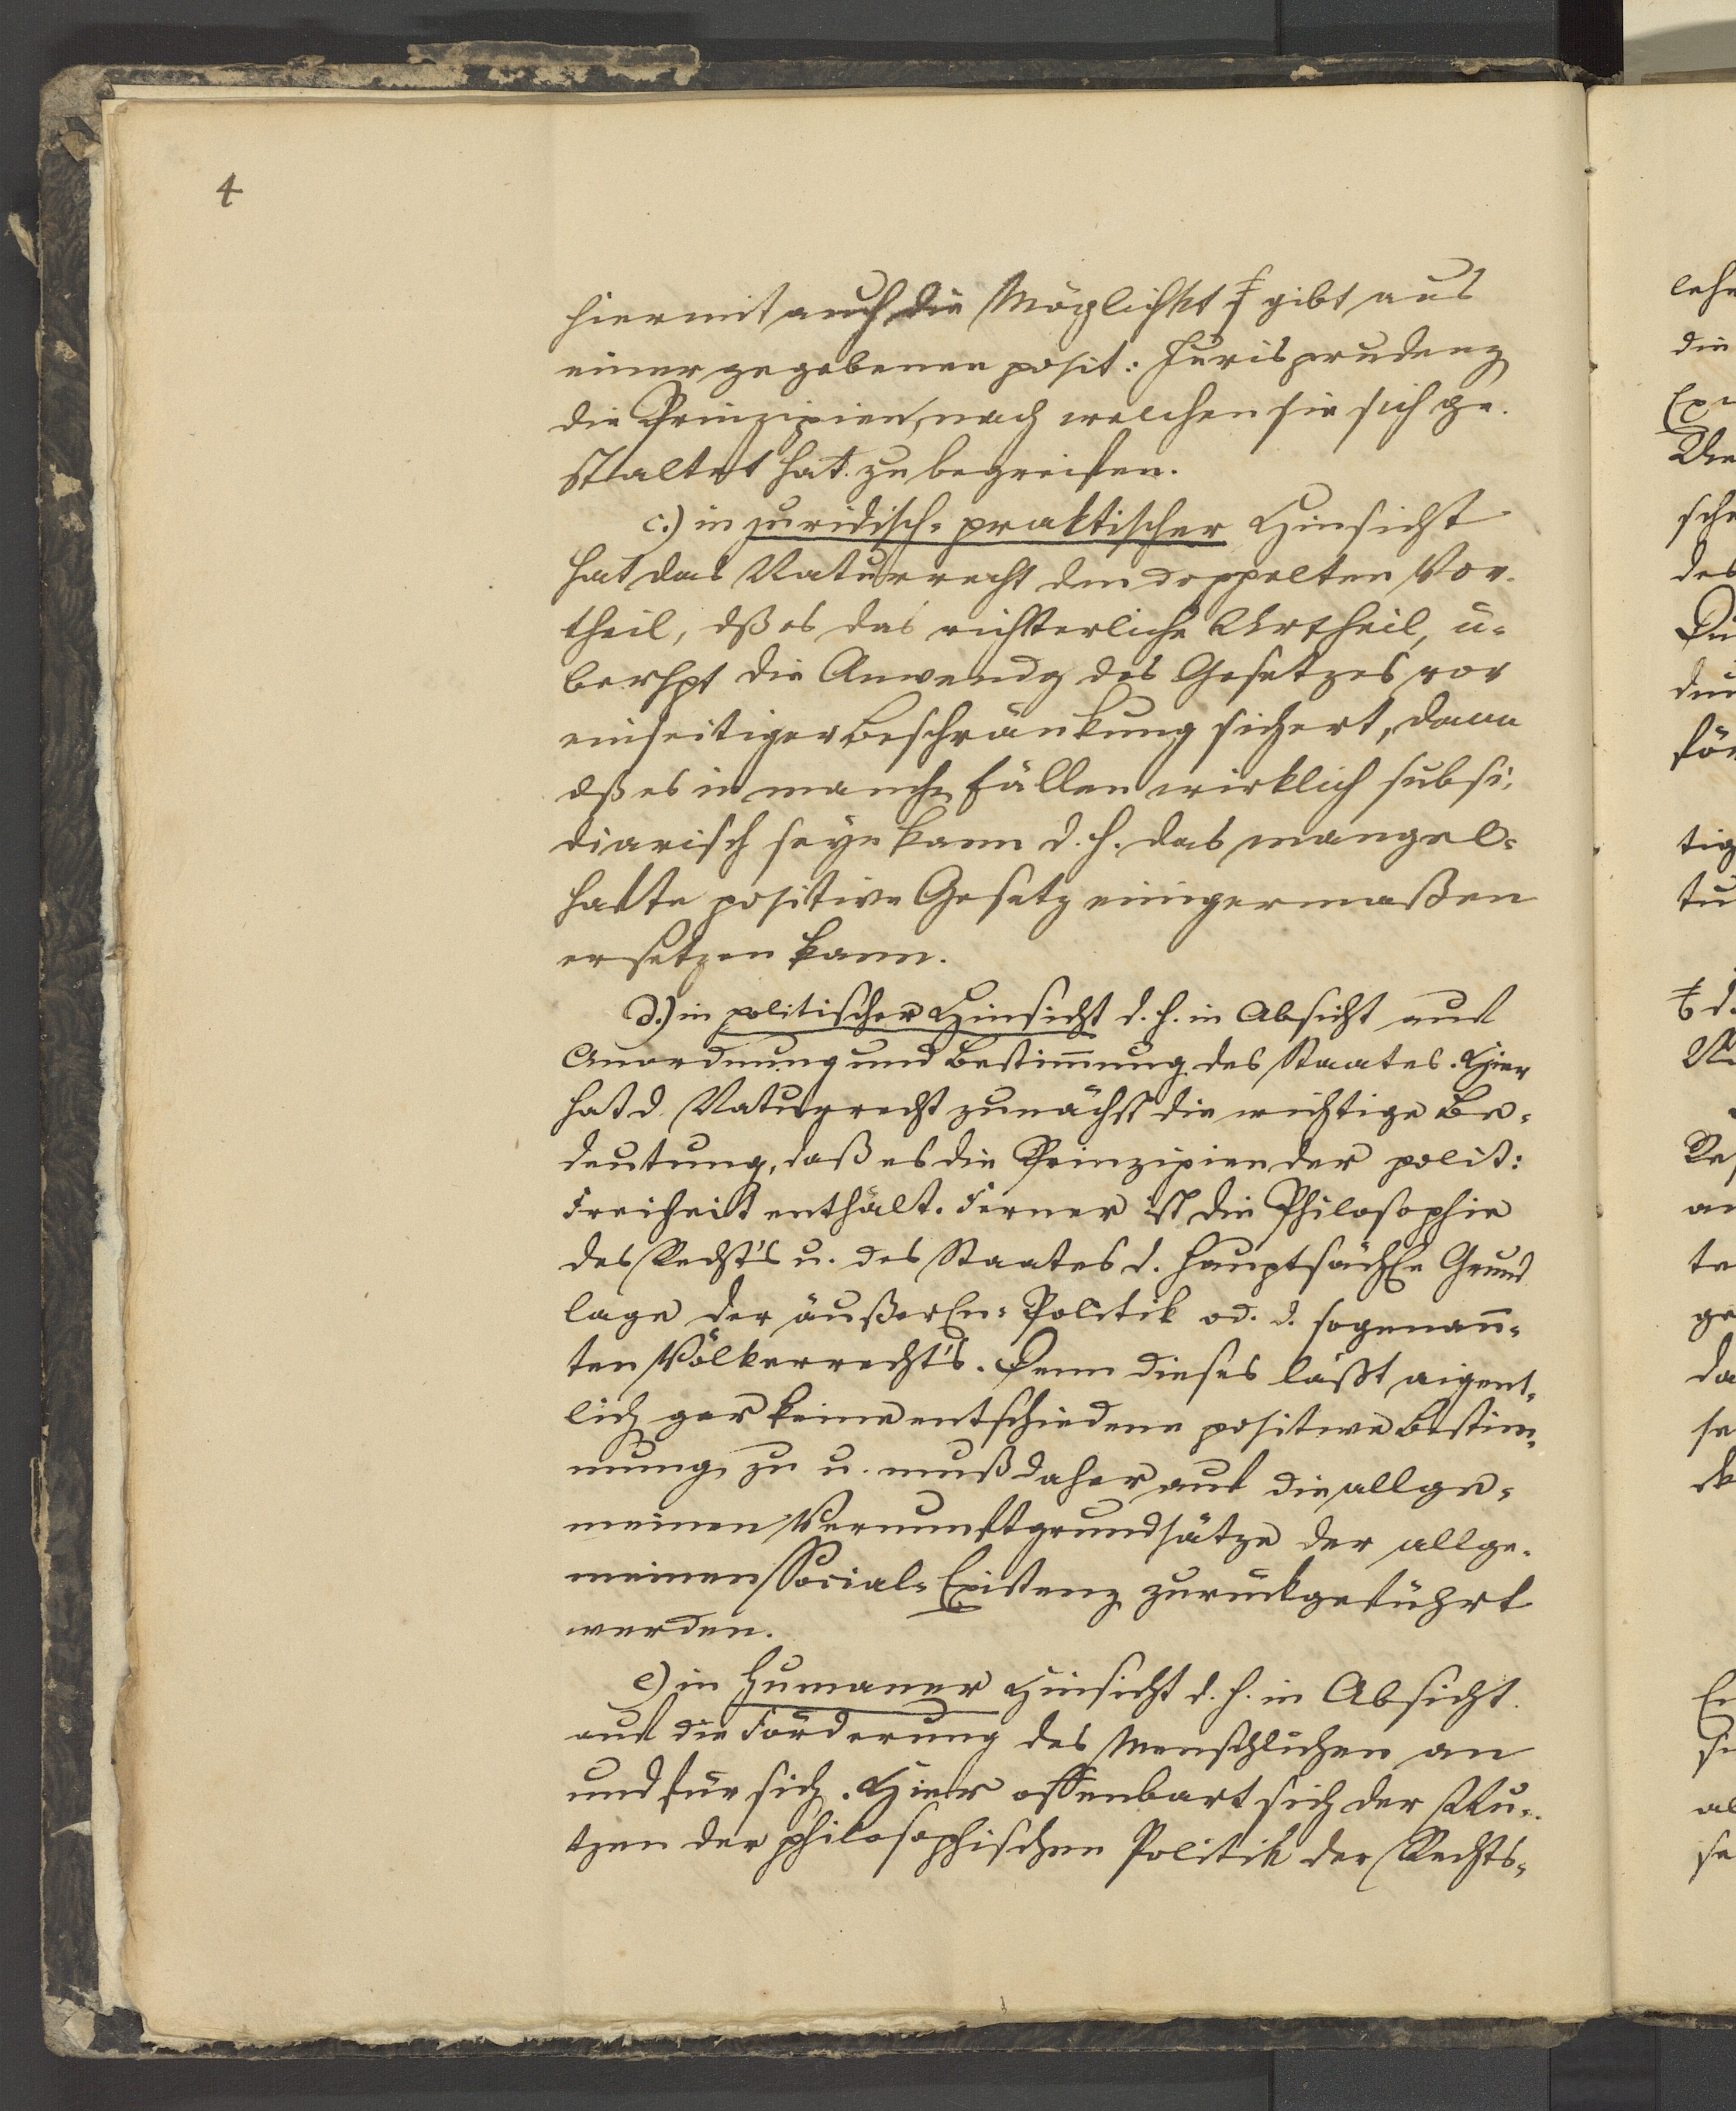 4
hiermit auch die Möglichkt gibt aus
einer gegebenen posit: Jurisprudenz
die Prinzipien, nach welchen sie sich ge-
staltet hat. zu begreifen.
c.) in juridisch-praktischer Hinsicht
hat das Naturrecht den doppelten Vor-
theil, dß es das richterliche Urtheil, ü-
berhpt die Anwendg des Gesetzes vor
einseitiger Beschränkung sichert, dann
dß es in manchn Fällen wirklich subsi-
diarisch seyn kann d. h. das mangel-
hafte positive Gesetz einigermaßen
ersetzen kann.
d.) in politischer Hinsicht d. h. in Absicht auf
Anordnung und Bestim̅ung des Staates. Hier
hat d. Naturrecht zunächst die wichtige Be-
deutung, daß es die Prinzipien der polit:
Freiheit enthält. Ferner ist die Philosophie
des Recht's u. des Staates d. hauptsächle Grund
lage der äußerln- Politik od. d. sogenan̅-
ten Völkerrecht's. Denn dieses läßt eigent-
lich gar keine entschiedene positive Bestim-
mung zu u. muß daher auf die allge-
meinen Vernunftgrundsätze der allge-
meinen Social-Existenz zurückgeführt
werden.
e) in humaner Hinsicht d. h. in Absicht
auf die Förderung des Menschlichen an
und für sich. Hier offenbart sich der Nu-
tzen der philosophischen Politik der Rechts-
lehr
die
des
tig
tu
d.
an
te
ge
da
se
al
se